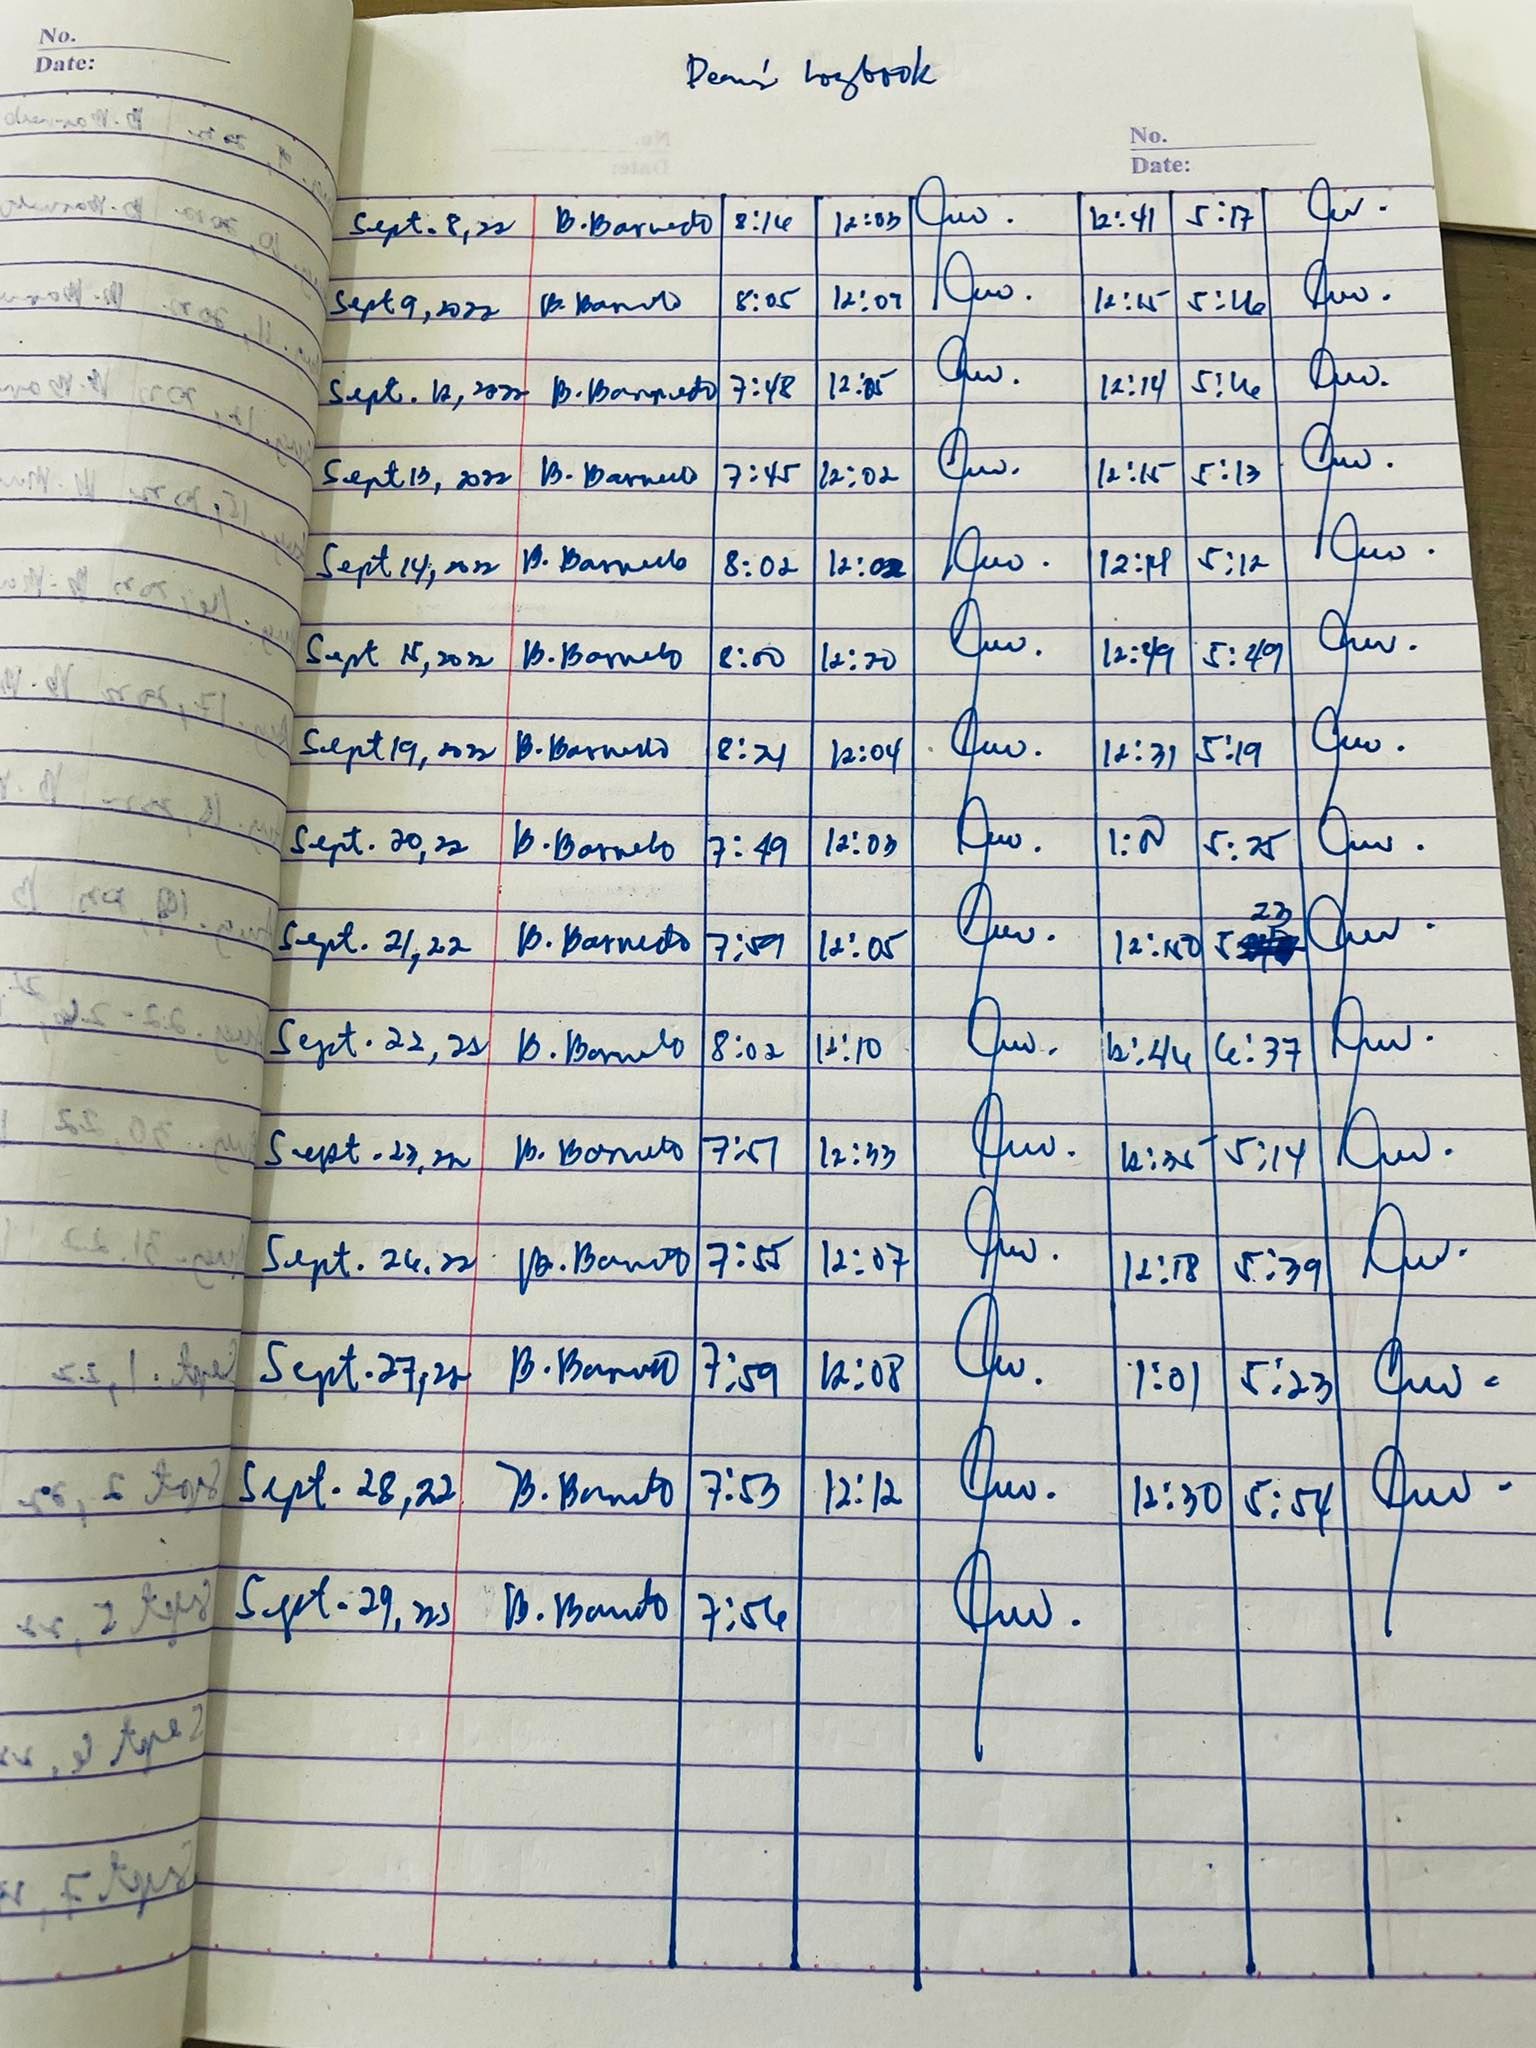 No.
Date:
Dean's Logbook
No.
Date:
Sept. 8, 22 B. Barnedo 8:16 12:03 12:41 5:17
Sept 9, 2022 B. Barnedo 8:05 12:07 12:15 5:16
Sept. 12, 2022 B. Barnedo 7:48 12:05 12:14 5:16
Sept 13, 2022 B. Barnedo 7:45 12:02 12:15 5:13
Sept 14, 2022 B. Barnedo 8:02 12:02 5:12
Sept 15, 2022 B. Barnedo 8:00 12:20 12:49 5:49
Sept 19, 2022 B. Barnedo 8:21 12:04 12:31 5:19
Sept. 20, 22 B. Barnedo 7:49 12:03 5:25
Sept. 21, 22 B. Barnedo 7:59 12:05 5:23
Sept. 22, 22 B. Barnedo 8:02 12:10 12:46 6:37
Sept. 23, 22 B. Barnedo 7:57 12:33 12:35 5:14
Sept. 26, 22 B. Barnedo 7:55 12:07 12:18 5:39
Sept. 27, 22 B. Barnedo 7:59 12:08 1:01 5:23
Sept. 28, 22 B. Barnedo 7:53 12:12 12:30 5:54
Sept. 29, 22 B. Barnedo 7:56